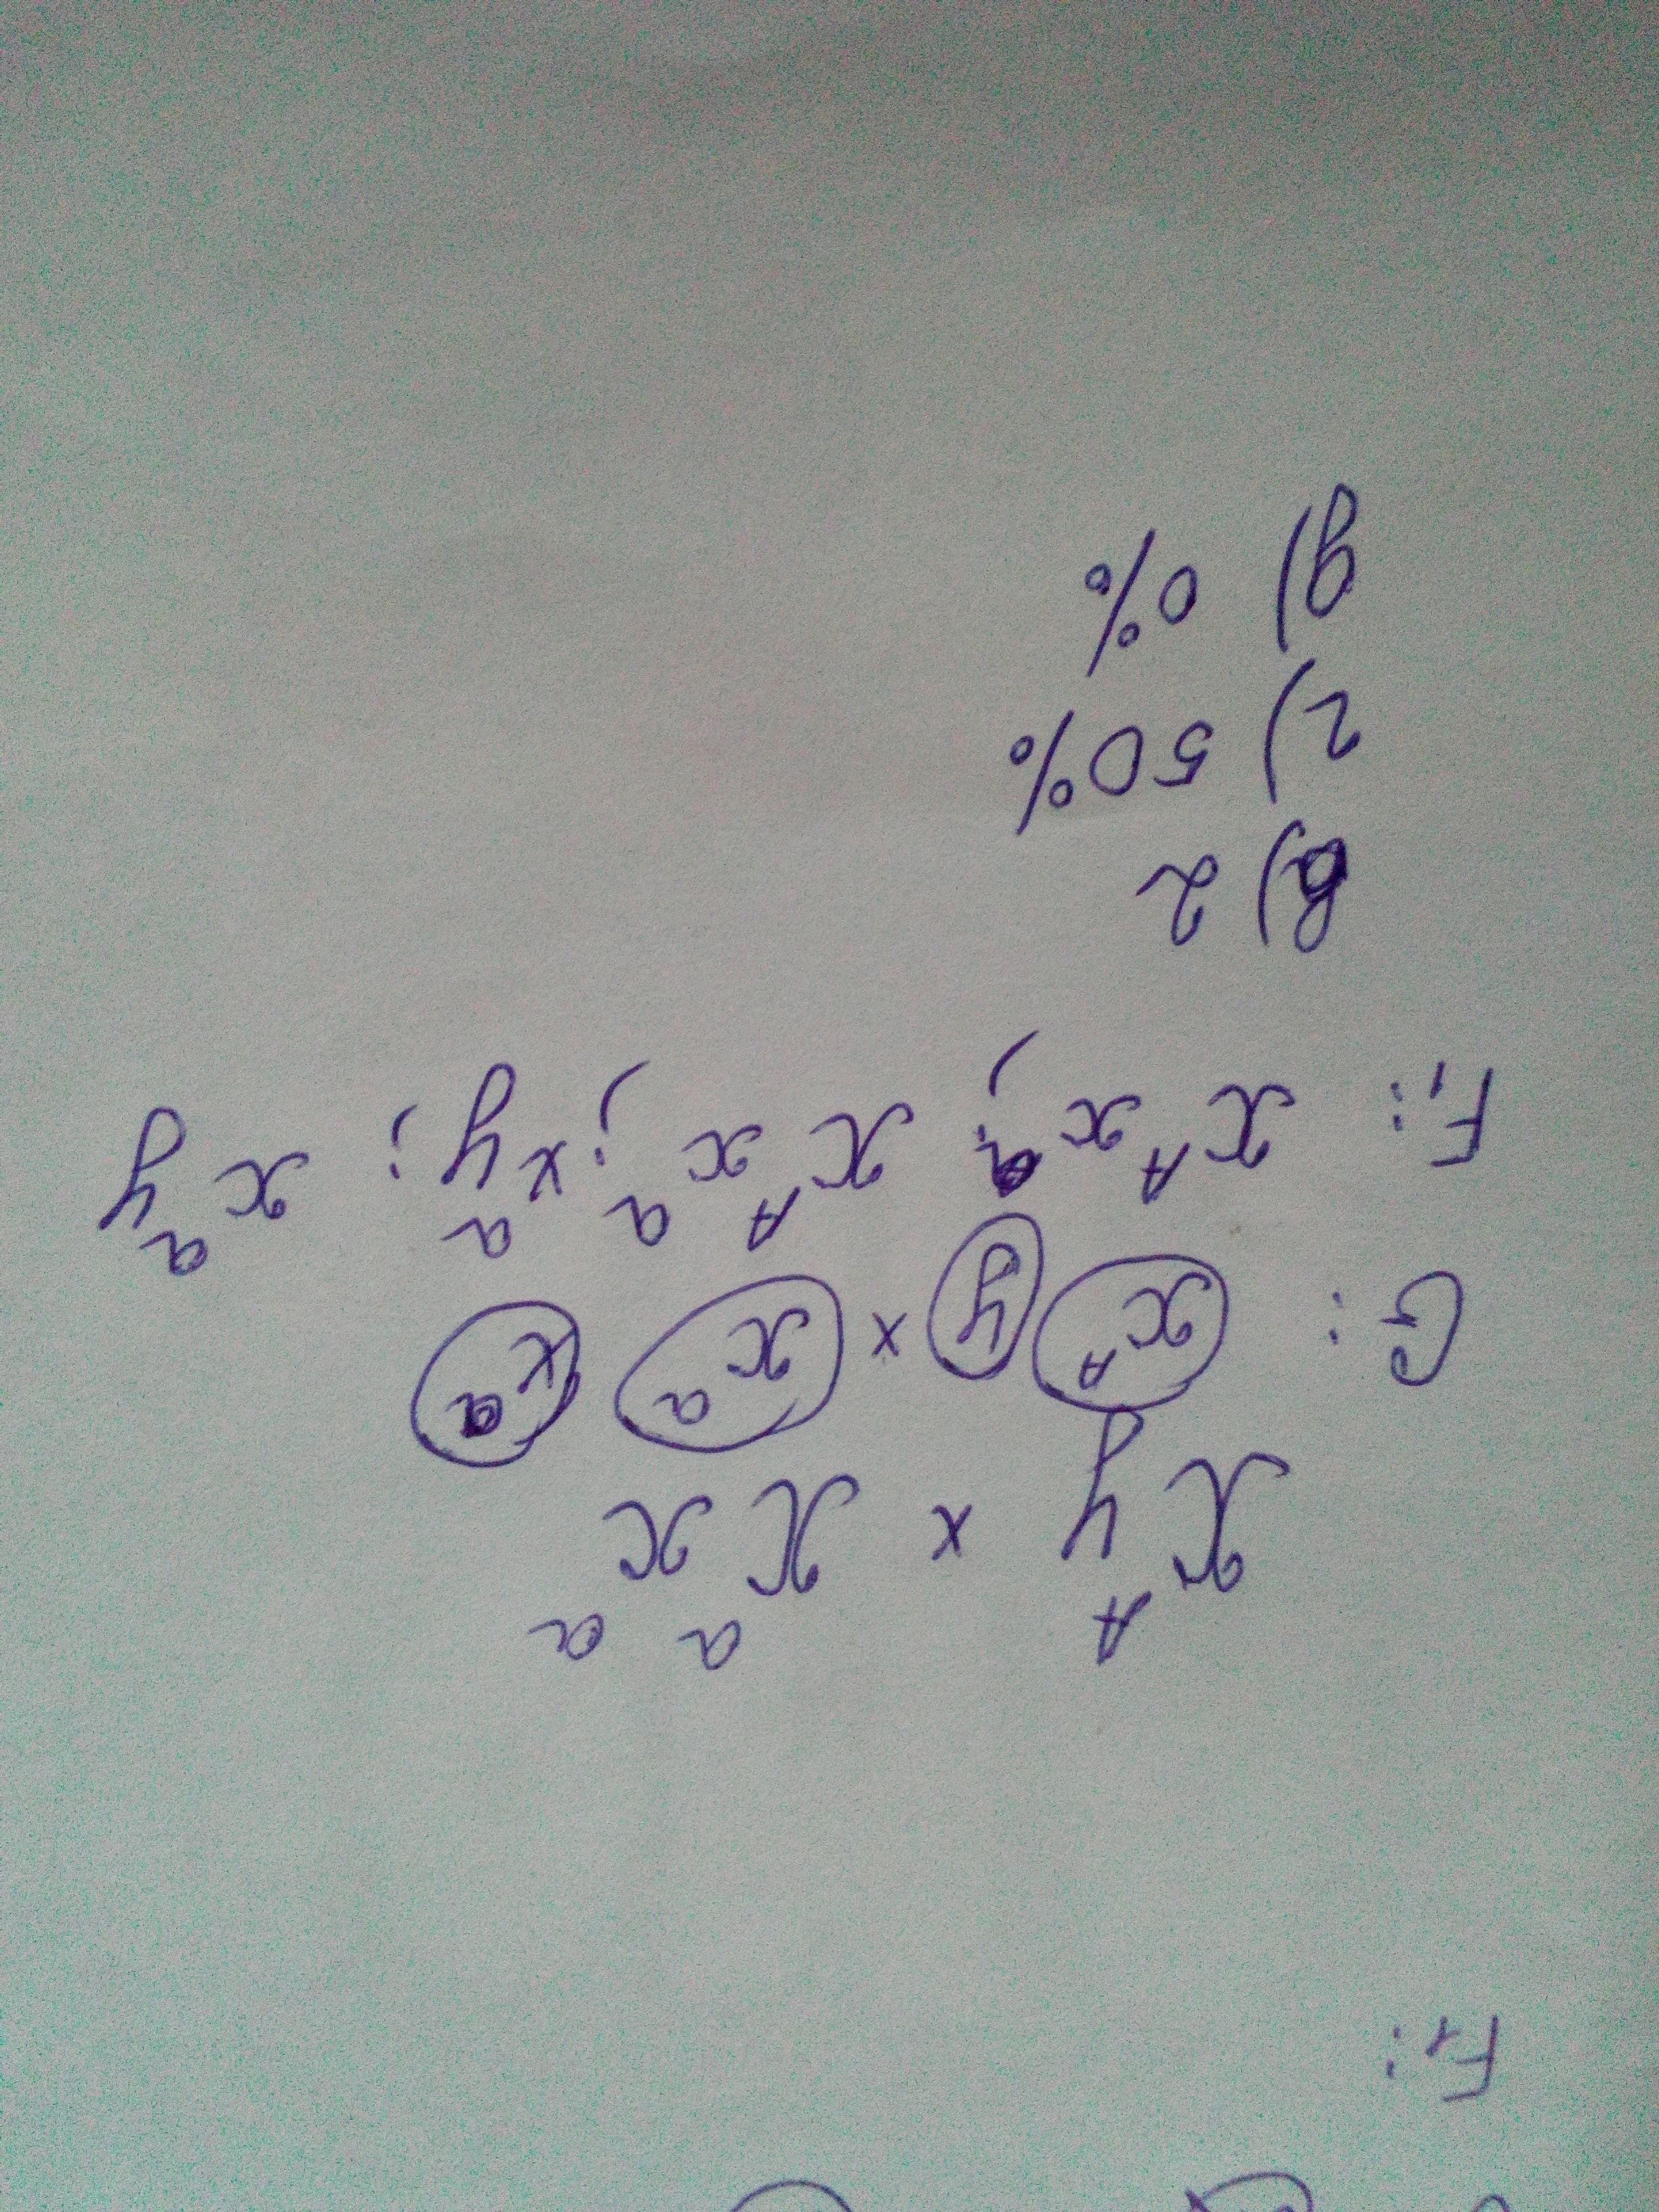 F₁:
X^A y × X^a X^a
G: (X^A) (y) × (X^a) (X^a)
F₁: X^A X^a; X^A X^a; X^a y; X^a y
в) 2
г) 50%
д) 0%